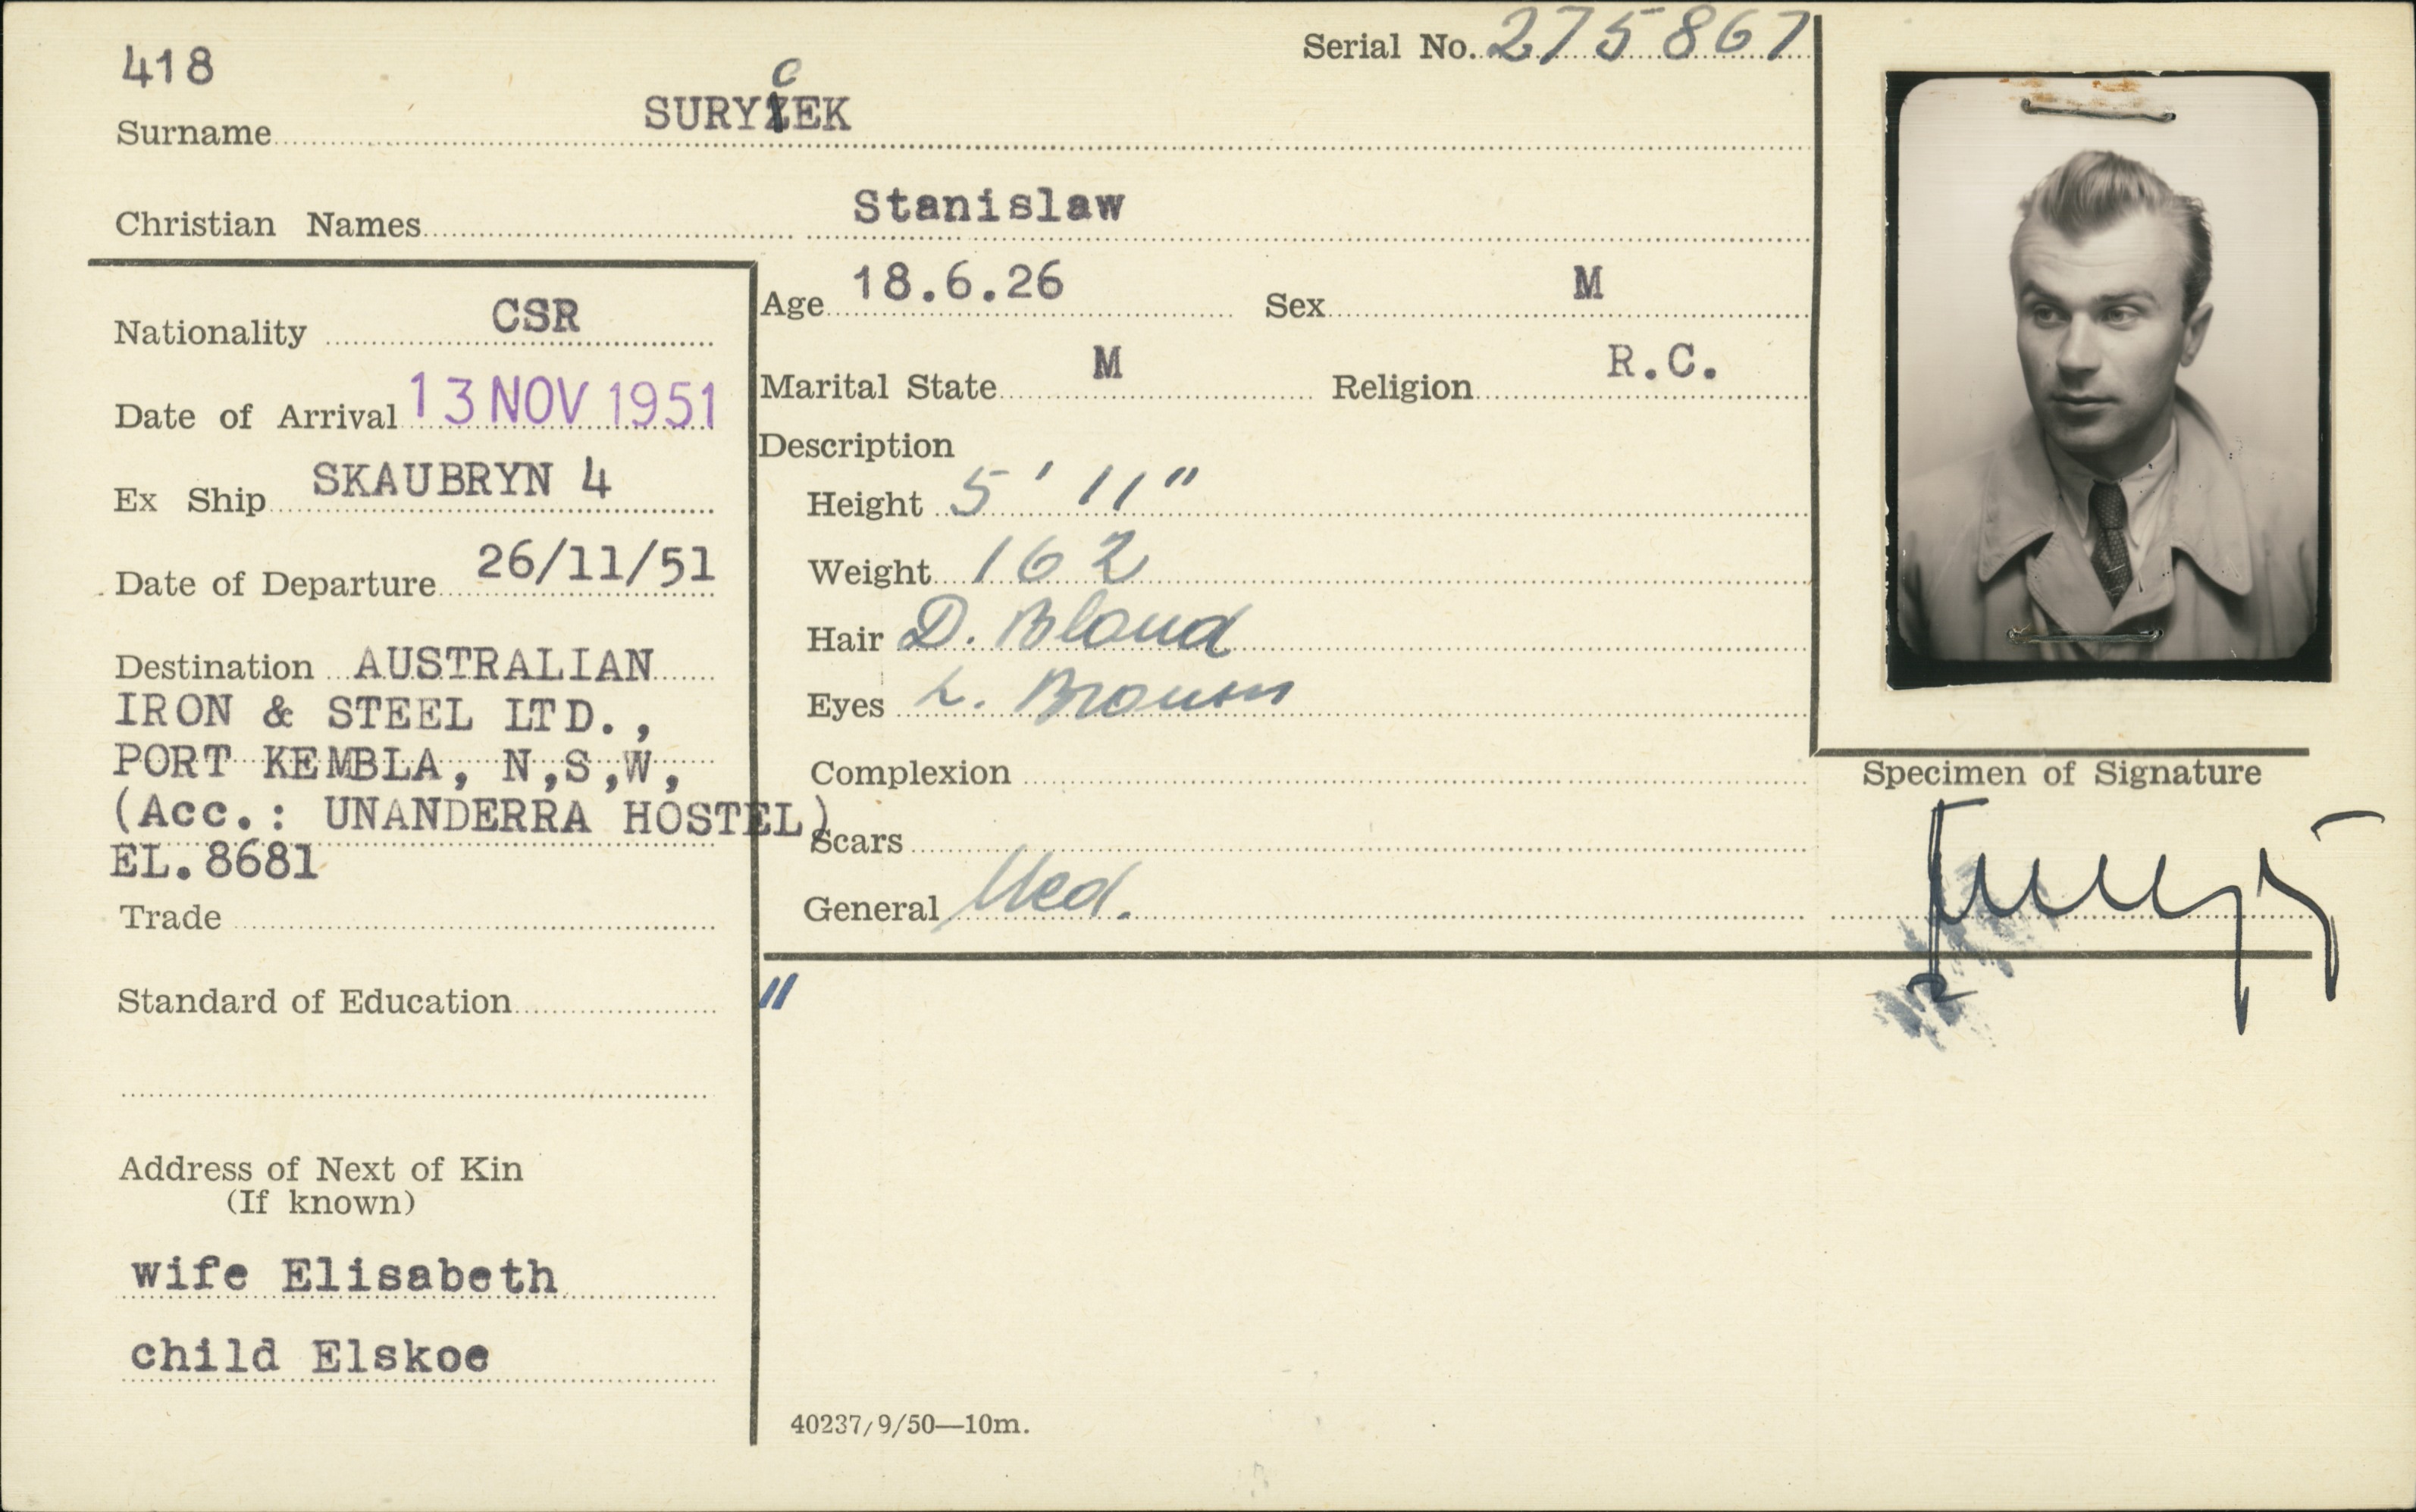 418
Serial No. 275867
c
Surname SURYZEK
Christian Names Stanislaw
Nationality CSR
Date of Arrival 13 NOV 1951
Ex Ship SKAUBRYN 4
Date of Departure 26/11/51
Destination AUSTRALIAN
IRON & STEEL LTD.,
PORT KEMBLA, N,S,W,
(Acc.: UNANDERRA HOSTEL)
EL.8681
Trade
Standard of Education
Address of Next of Kin
(If known)
wife Elisabeth
child Elskoe
Age 18.6.26 Sex M
Marital State M Religion R.C.
Description
Height 5' 11"
Weight 162
Hair D. Blond
Eyes L. Brown
Complexion
Scars
General Med.
"
40237/9/50—10m.
Specimen of Signature